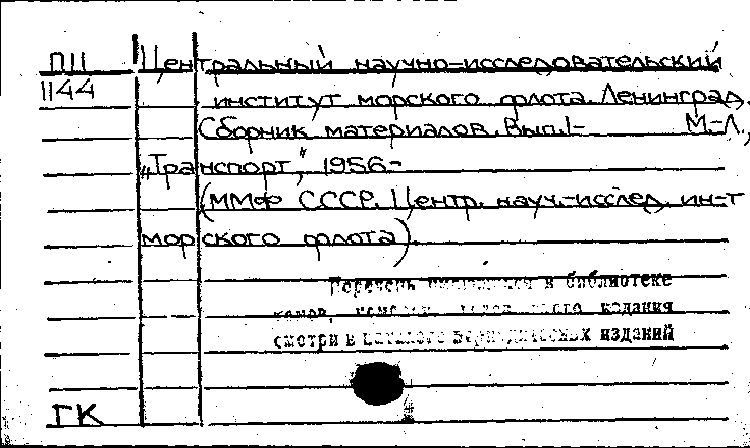 П11 Центральный научно-исследовательский
1144 институт морского флота. Ленинград.
Сборник материалов. Вып.1- М.-Л.,
"Транспорт", 1956-
(ММФ СССР. Центр. науч.-исслед. ин-т
морского флота).
Перечень имеющихся в библиотеке
томов, номеров, издания
смотри в каталоге периодических изданий
ГК